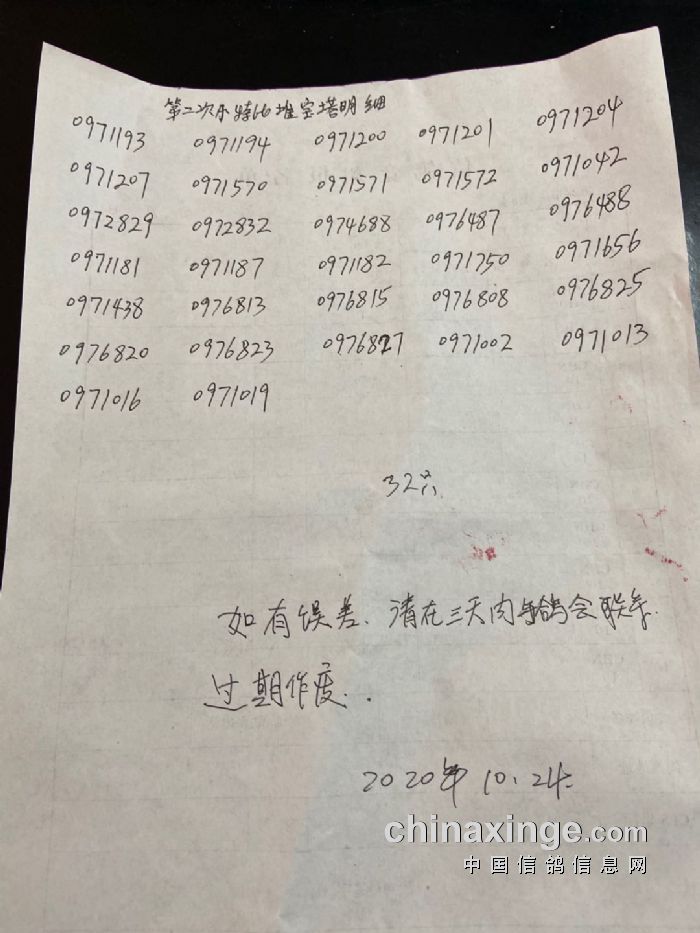 第二次小特比堆宝塔明细
0971193 0971194 0971200 0971201 0971204
0971207 0971570 0971571 0971572 0971042
0972829 0972832 0974688 0976487 0976488
0971181 0971187 0971182 0971750 0971656
0971438 0976813 0976815 0976808 0976825
0976820 0976823 0976827 0971002 0971013
0971016 0971019
32只
如有误差、请在三天内与鸽会联系.
过期作废.
2020年10.24
chinaxinge.com
中国信鸽信息网